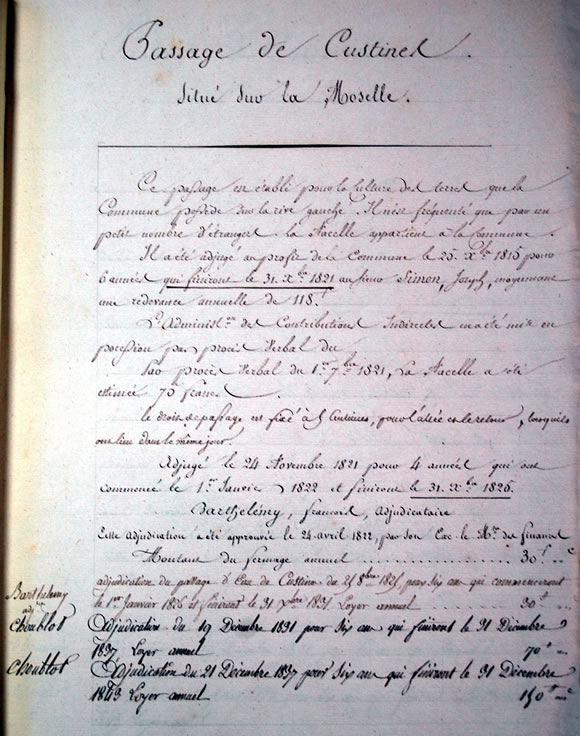 Passage de Custines.
Situé sur la Moselle.
Ce passage est établi pour la culture des terres que la
Commune possède sur la rive gauche. Il n'est fréquenté que par un
petit nombre d'étrangers. La Nacelle appartient à la Commune.
Il a été adjugé au profit de la Commune le 25. Xbre 1815 pour
6 années qui finiront le 31. Xbre 1821 au sieur Simon, Joseph, moyennant
une redevance annuelle de 118f
L'Administ.on des Contributions Indirectes en a été mise en
possession par procès Verbal du
Par procès Verbal du 1er 7bre 1821, La Nacelle a été
estimée 75 francs.
Le droit de passage est fixé à 5 Centimes, pour l'allée et le retour, lorsqu'ils
ont lieu dans le même jour.
Adjugé le 24 Novembre 1821 pour 4 années qui ont
commencé le 1er Janvier 1822 et finiront le 31. Xbre 1825.
Barthélémy, françois, adjudicataire
Cette adjudication a été approuvée le 24 avril 1822, par Son Exc. le Mtre des finances
Montant du fermage annuel 30f "c
adjudication du passage d'Eau de Custines du 25 8bre 1825 pour six ans qui commenceront
Barthélemy
adjre
le 1er Janvier 1826 et finiront le 31 Xbre 1831 Loyer annuel 30f "c
Choublot
Adjudication du 19 Décembre 1831 pour six ans qui finiront le 31 Décembre
1837 Loyer annuel 70f "c
Choublot
Adjudication du 21 Décembre 1837 pour six ans qui finiront le 31 Décembre
1843 Loyer annuel 150f "c